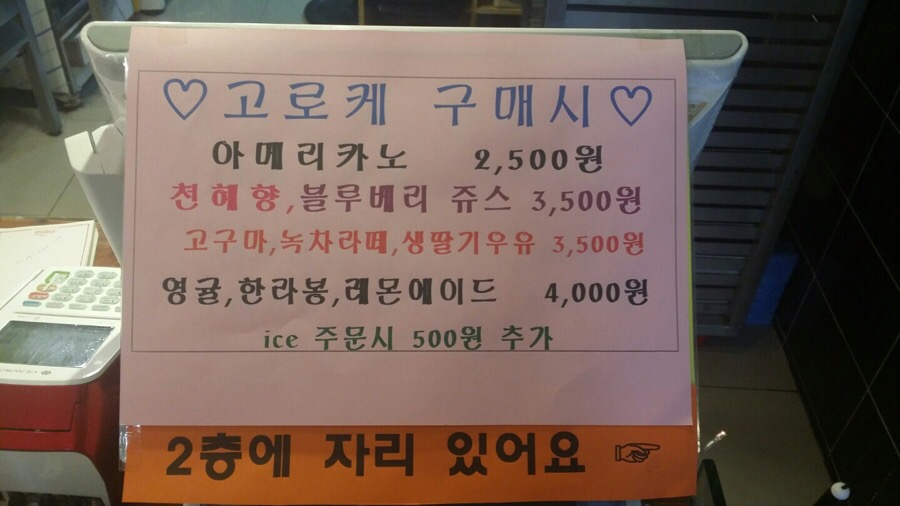 ♡고로케 구매시♡
아메리카노 2,500원
천혜향,블루베리 쥬스 3,500원
고구마,녹차라떼,생딸기우유 3,500원
영귤,한라봉,레몬에이드 4,000원
ice 주문시 500원 추가
2층에 자리 있어요 ☞